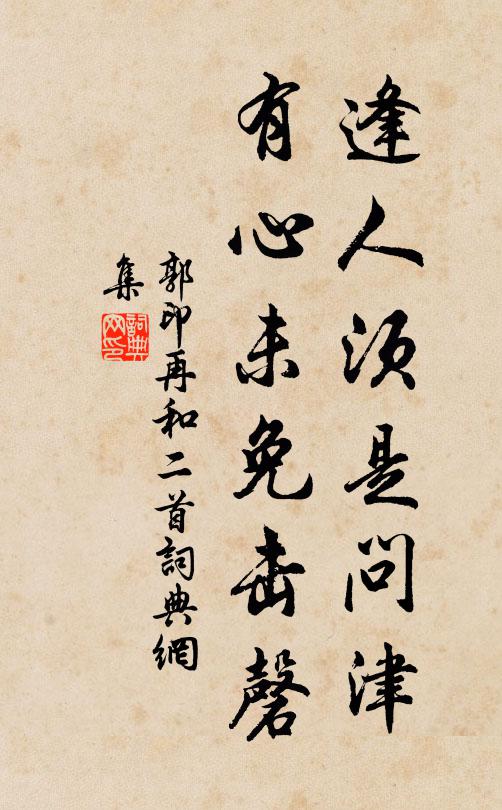 逢人須是問津
有心未免击磬
郭印再和二首詞典網
集
詞典
网印